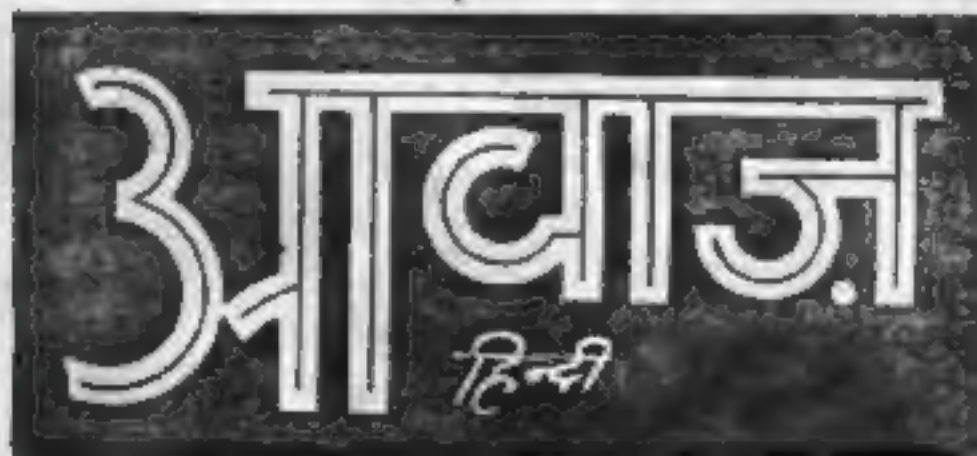 आवाज़
हिन्दी